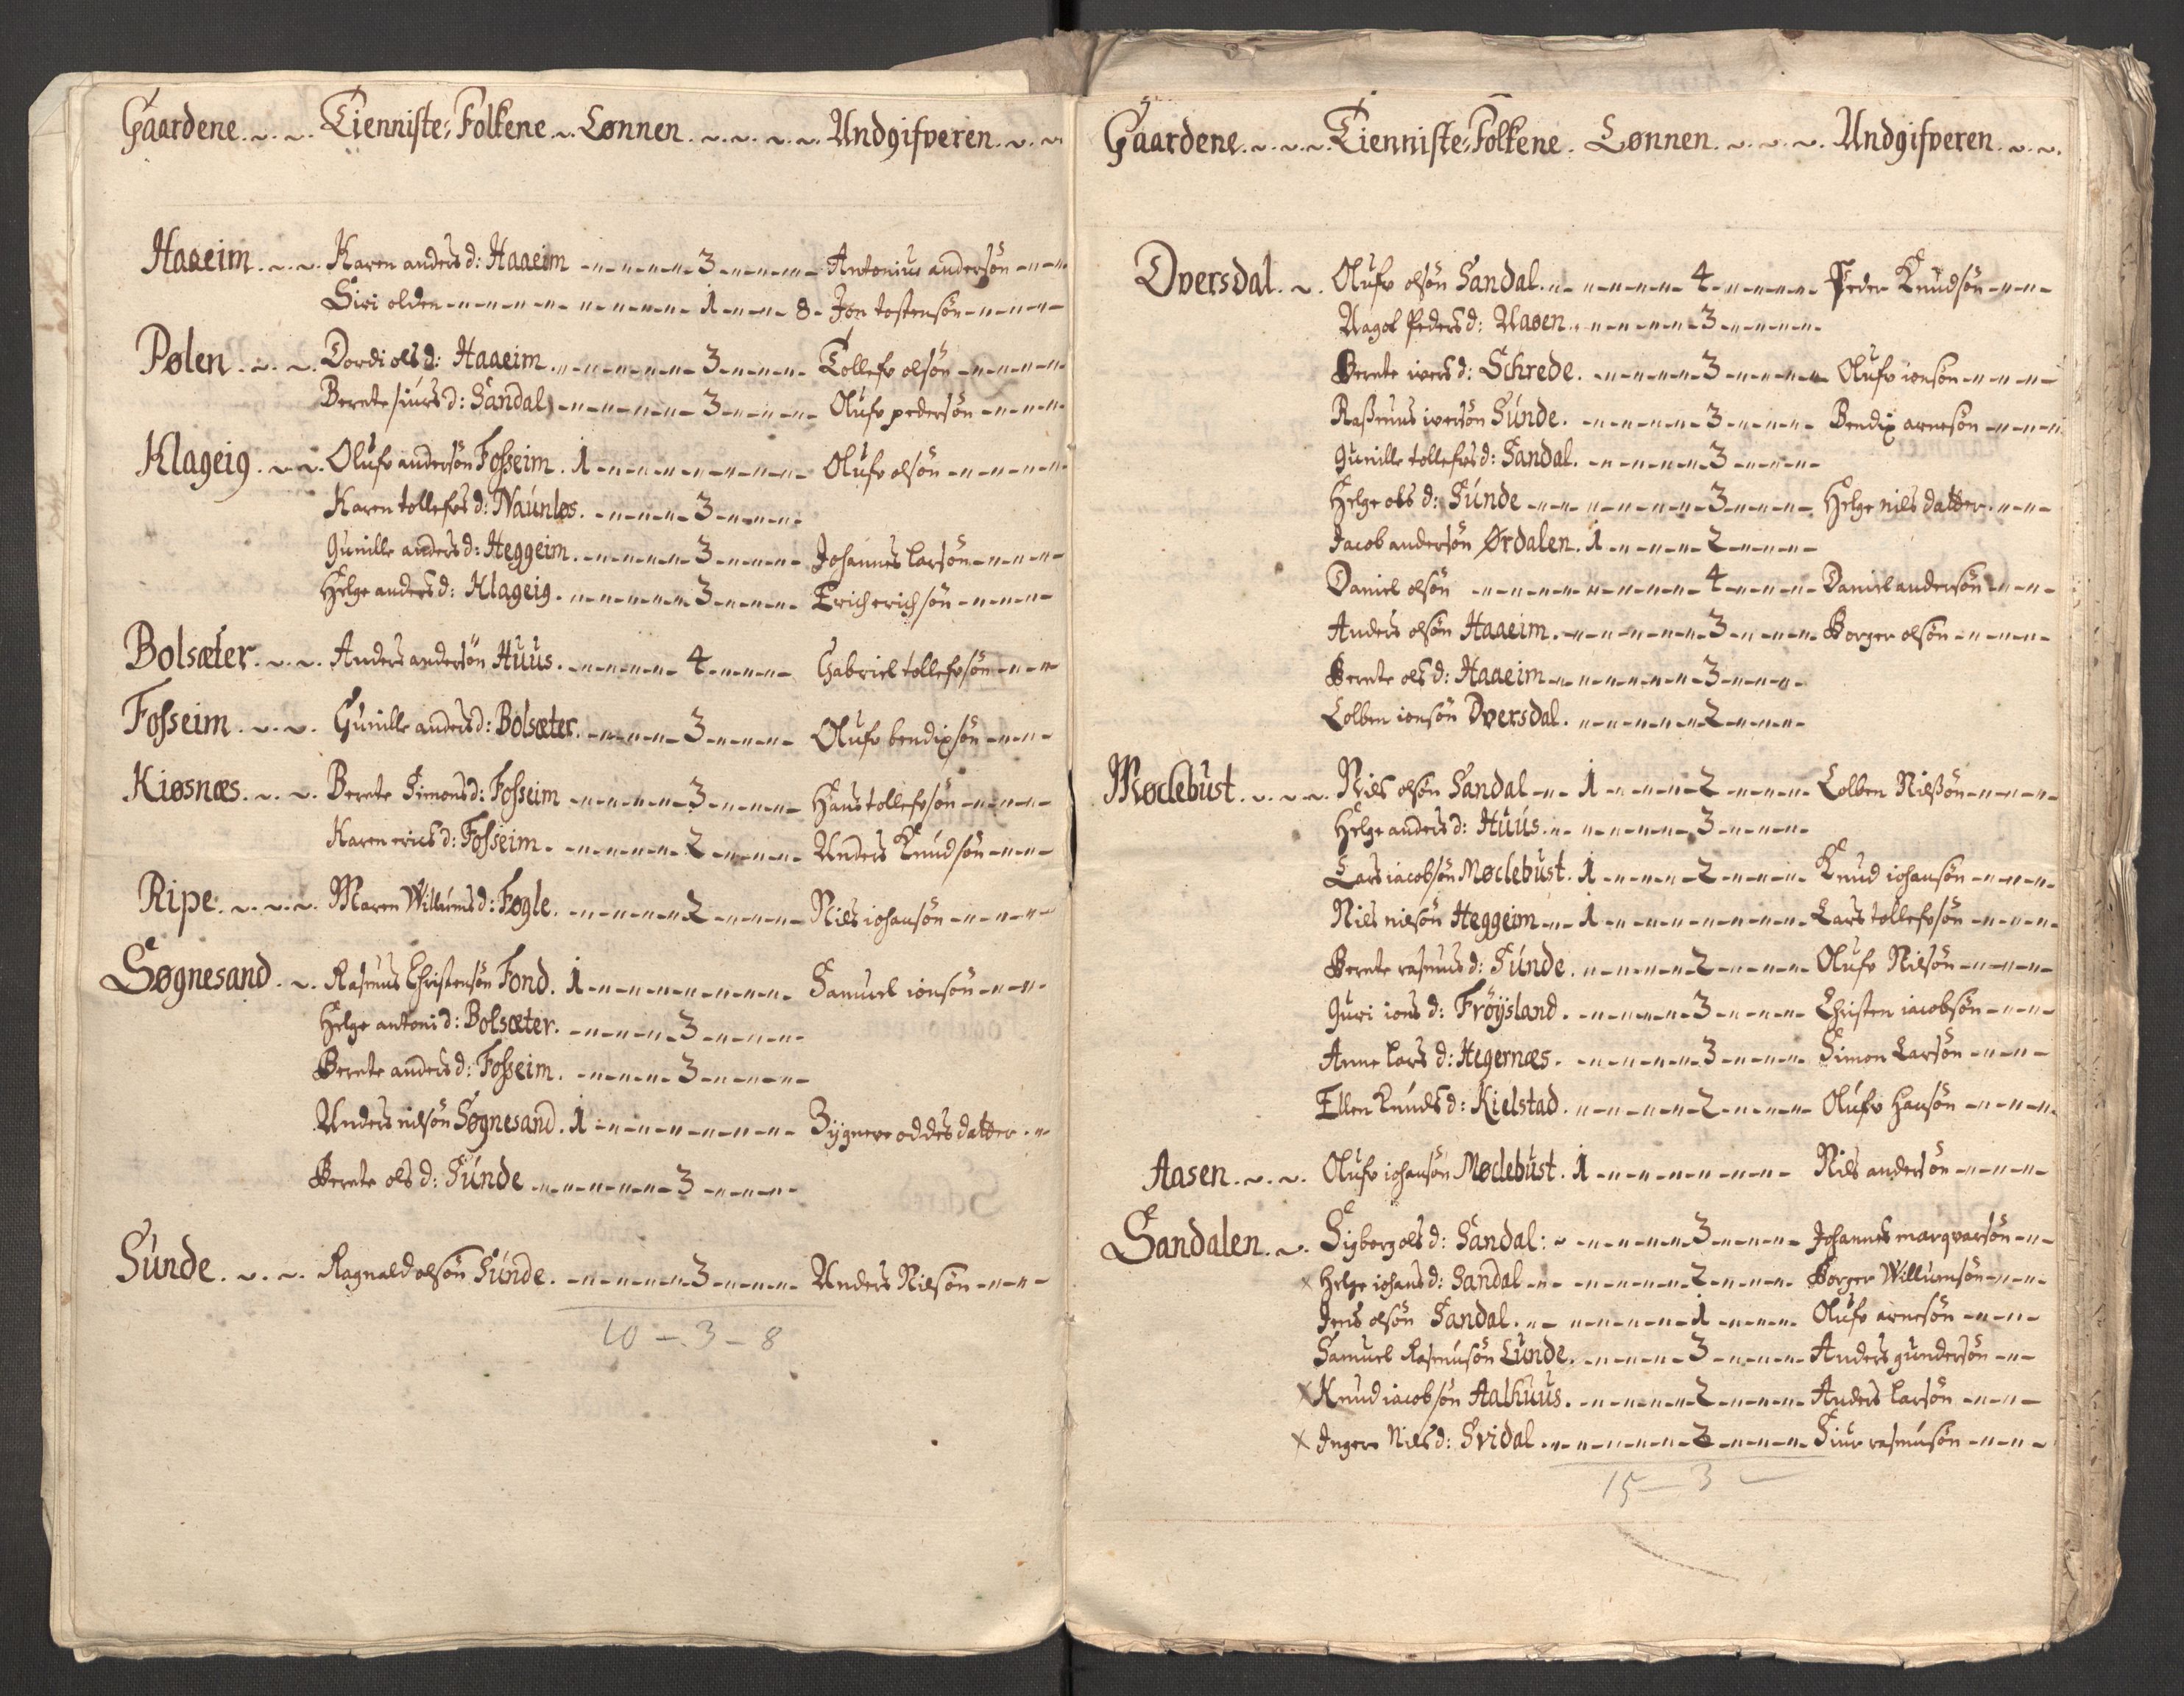 Gaardene Tienniste-Folkene Lønnen Undgifveren
Haaeim Karen anders d: Haaeim 3 Antonius andersön
Siri olden 1 8 Jon tostensön
Pølen Dordi ols d: Haaeim 3 Tollefv olsön
Berete siurs d: Sandal 3 Olufv pedersön
Klageig Olufv andersön Fosseim 1 Olufv olsön
Karen tollefs d: Naunløs 3
Gunille anders d: Heggeim 3 Johannes larsön
Helge anders d: Klageig 3 Erich erichsön
Bolsæter Anders andersön Huus 4 Gabriel tollefvsön
Fosseim Gunille anders d: Bolsæter 3 Olufv bendixsön
Kiøsnæs Berete Simons d: Fosseim 3 Hans tollefvsön
Karen erics d: Fosseim 2 Anders Knudsön
Ripe Maren Willums d: Fogle 2 Niels iohansön
Søgnesand Rasmus Christensön Fond 1 Samuel ionsön
Helge antoni d: Bolsæter 3
Berete anders d: Fosseim 3
Anders nilsön Søgnesand 1 Bygnere oddes datter
Berete ols d: Sunde 3
Sunde Ragnald olsön Sunde 3 Anders Nilsön
10 - 3 - 8
Gaardene Tienniste-Folkene Lønnen Undgifveren
Dversdal Olufv olsön Sandal 4 Peder Knudsön
Aagot peders d: Aasen 3
Berete ivers d: Schrede 3 Olufv ionsön
Rasmus iversön Sunde 3 Bendix arnesön
Gunille tollefs d: Sandal 3
Helge ols d: Sunde 3 Helge nils datter
Jacob andersön Ørdalen 1 2
Daniel olsön 4 Daniel andersön
Anders olsön Haaeim 3 Borger olsön
Berete ols d: Haaeim 3
Colben ionsön Dversdal 2
Møclebust Niels olsön Sandal 1 2 Colben Nilssön
Helge anders d: Huus 3
Lars iacobsön Møclebust 1 2 Knud iohansön
Niels nilsön Heggeim 1 Lars tollefvsön
Berete rasmus d: Sunde 2 Olufv Nilsön
Guri ions d: Fröijsland 3 Christen iacobsön
Anne Lars d: Hegernæs 3 Simon Larsön
Ellen Knuds d: Kielstad 2 Olufv Hansön
Aasen Olufv iohansön Møclebust 1 Nils andersön
Sandalen Sigborg ols d: Sandal 3 Johannes marqvarsön
x Helge iohans d: Sandal 2 Borger Willumsön
Jens olsön Sandal 1 Olufv arnesön
Samuel Rasmusön Lunde 3 Anders gundersön
x Knud iacobsön Aalhuus 2 Anders larsön
x Inger Nils d: Svidal 2 Siur rasmusön
15 - 3 -